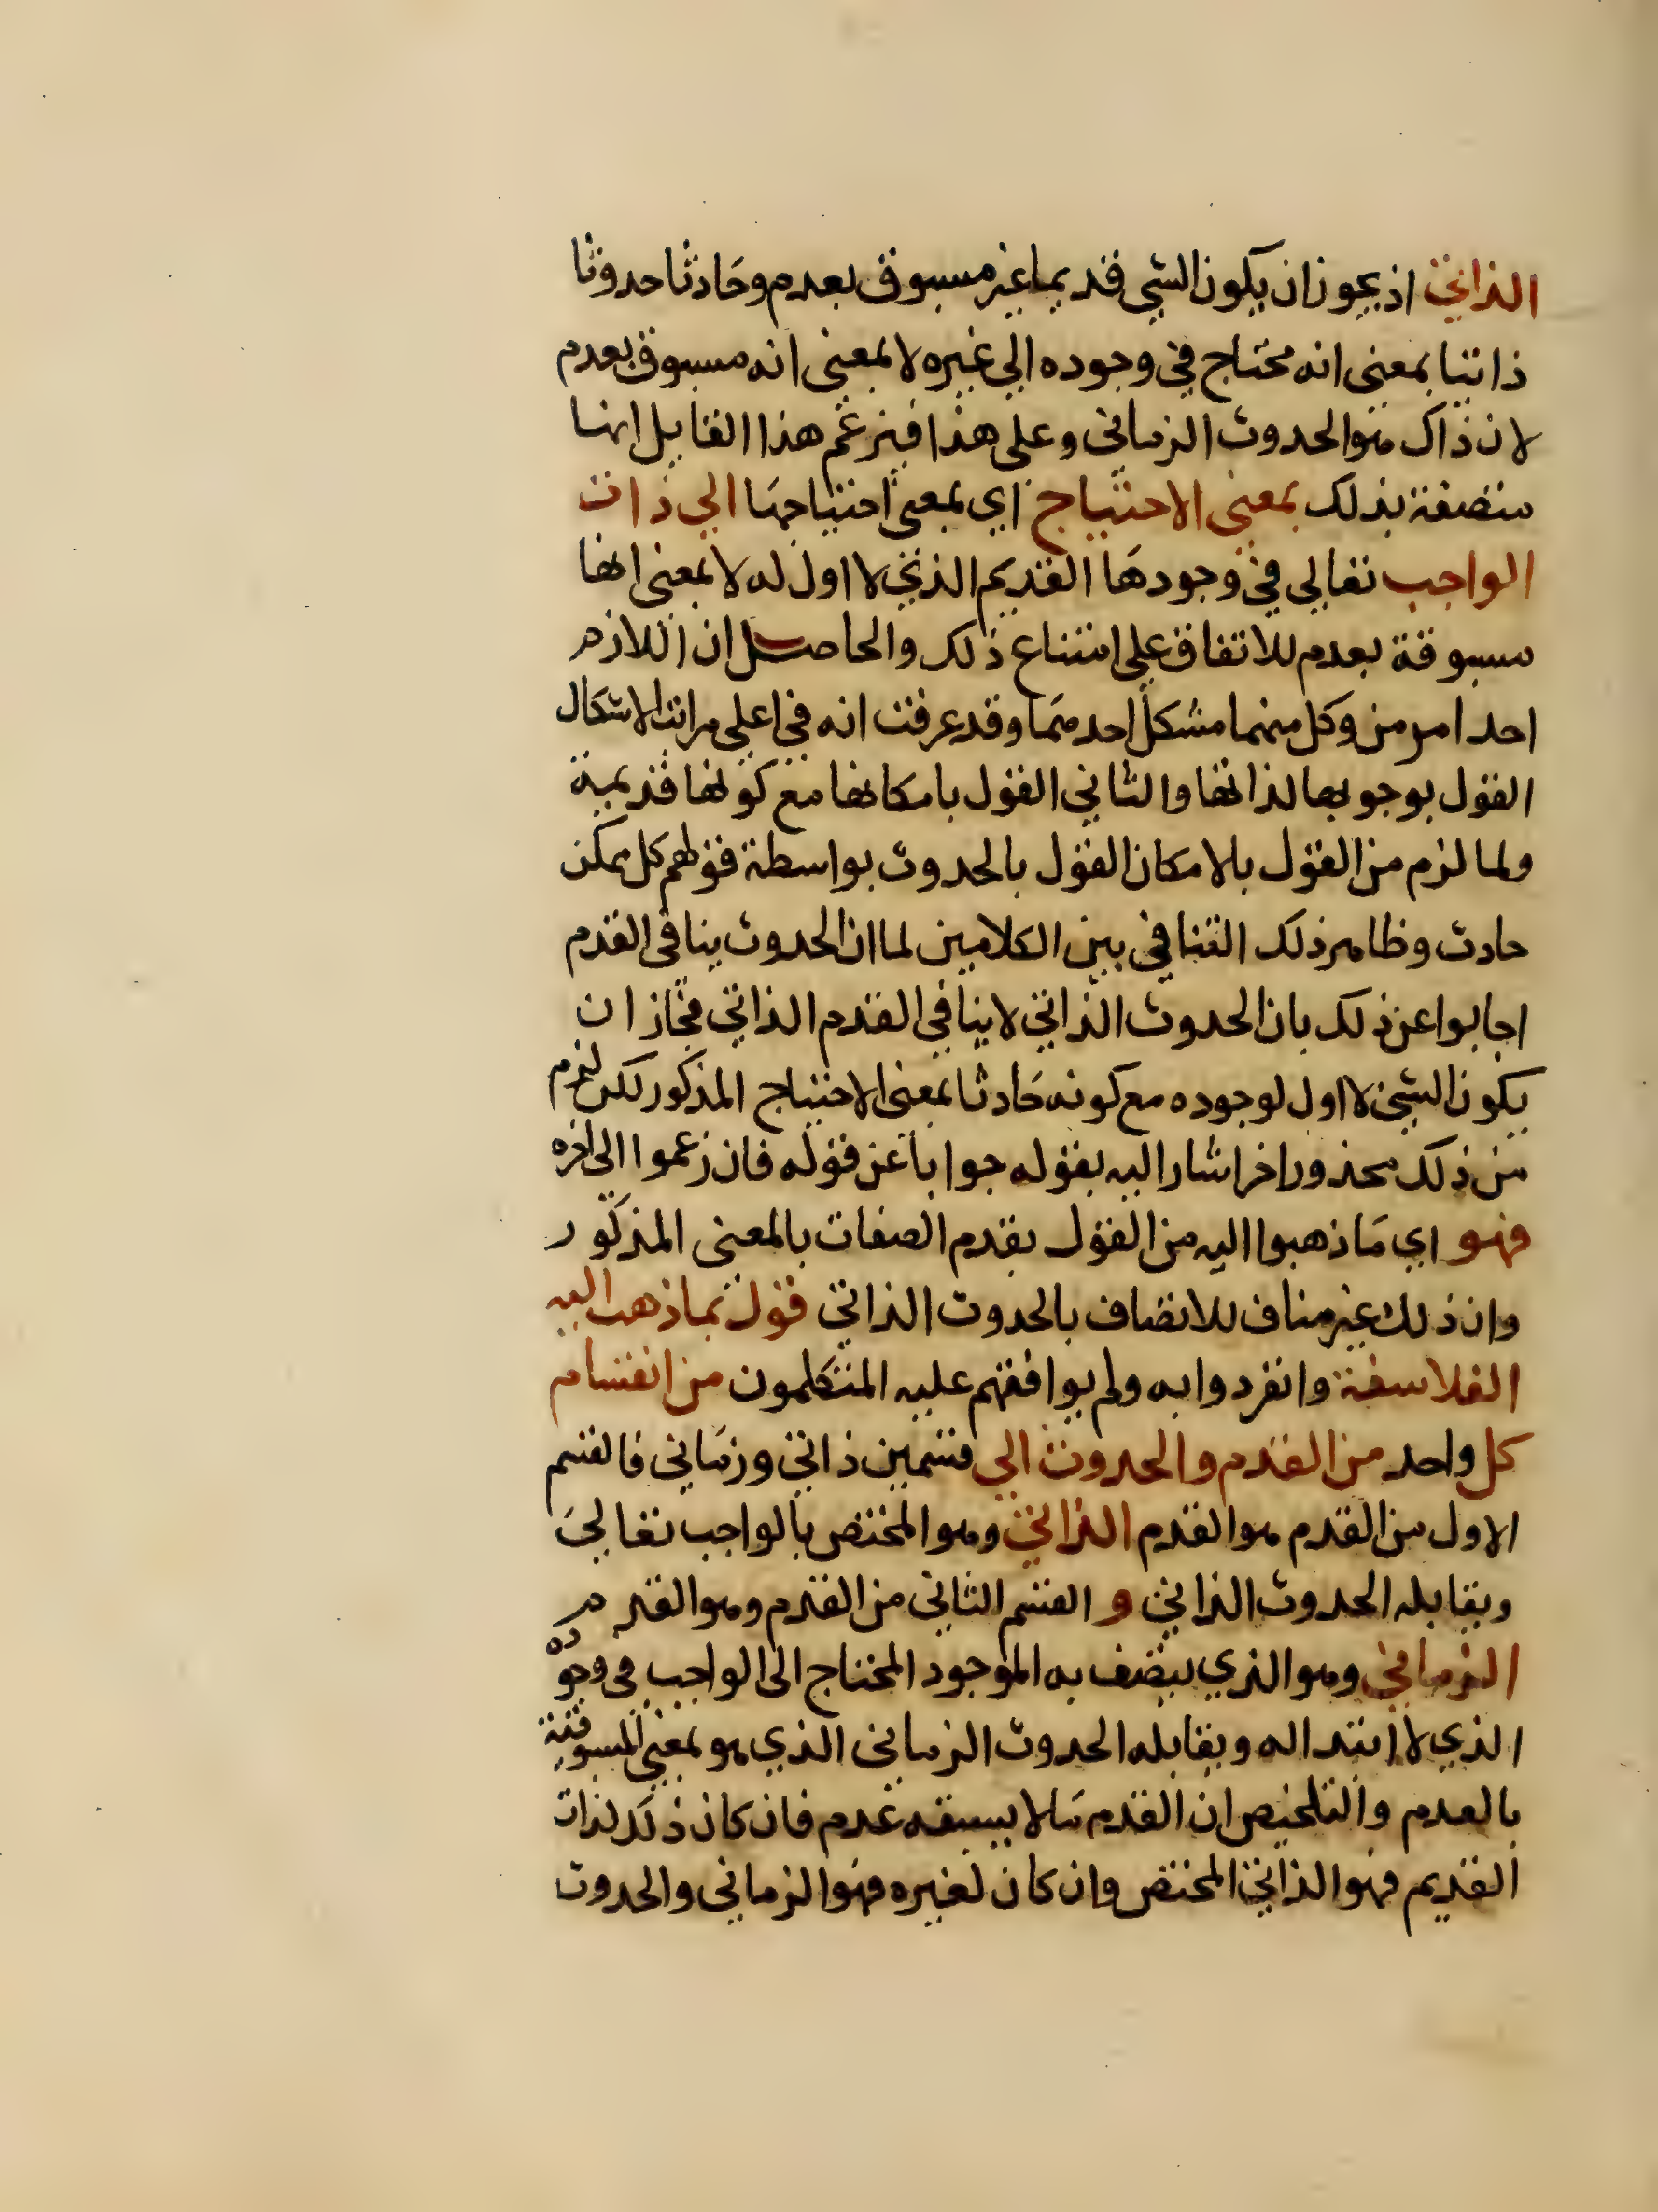 الذاتي اذ يجوز ان يكون الشي قديما غير مسبوق بعدم وحادثا حدوثا
ذاتيا بمعنى انه محتاج في وجوده الي غيره لا بمعنى انه مسبوق بعدم
لان ذاك هو الحدوث الزماني وعلى هذا فيزعم هذا القايل انها
متصفة بذلك بمعنى الاحتياج اي بمعنى احتياجها الي ذات
الواجب تعالي في وجودها القديم الذي لا اول له لا بمعنى انها
مسبوقة بعدم للاتفاق علي امتناع ذلك والحاصل ان اللازم
احد امرين وكل منهما مشكل احدهما وقد عرفت انه في اعلي مراتب الاشكال
القول بوجوبها لذاتها والثاني القول بامكانها مع كونها قديمة
ولما لزم من القول بالامكان القول بالحدوث بواسطة قولهم كل ممكن
حادث وظاهر ذلك التنافي بين الكلامين لما ان الحدوث ينافي القدم
اجابوا عن ذلك بان الحدوث الذاتي لا ينافي القدم الذاتي فجاز ان
يكون الشي لا اول لوجوده مع كونه حادثا بمعنى الاحتياج المذكور لكن لزم
من ذلك محذور اخر اشار اليه بقوله جوابا عن قوله فان زعموا الى اخره
فهو اي ما ذهبوا اليه من القول بقدم الصفات بالمعنى المذكور
وان ذلك غير مناف للاتصاف بالحدوث الذاتي قول بما ذهب اليه
الفلاسفة وانفردوا به ولم يوافقهم عليه المتكلمون من انقسام
كل واحد من القدم والحدوث الي قسمين ذاتي وزماني فالقسم
الاول من القدم هو القدم الذاتي وهو المختص بالواجب تعالي
ويقابله الحدوث الذاتي و القسم الثاني من القدم وهو القدم
الزماني وهو الذي يتصف به الموجود المحتاج الى الواجب في وجوده
الذي لا ابتدا له ويقابله الحدوث الزماني الذي هو بمعنى المسبوقية
بالعدم والتلخيص ان القدم ما لا يسبقه عدم فان كان ذلك لذات
القديم فهو الذاتي المختص وان كان لغيره فهو الزماني والحدوث